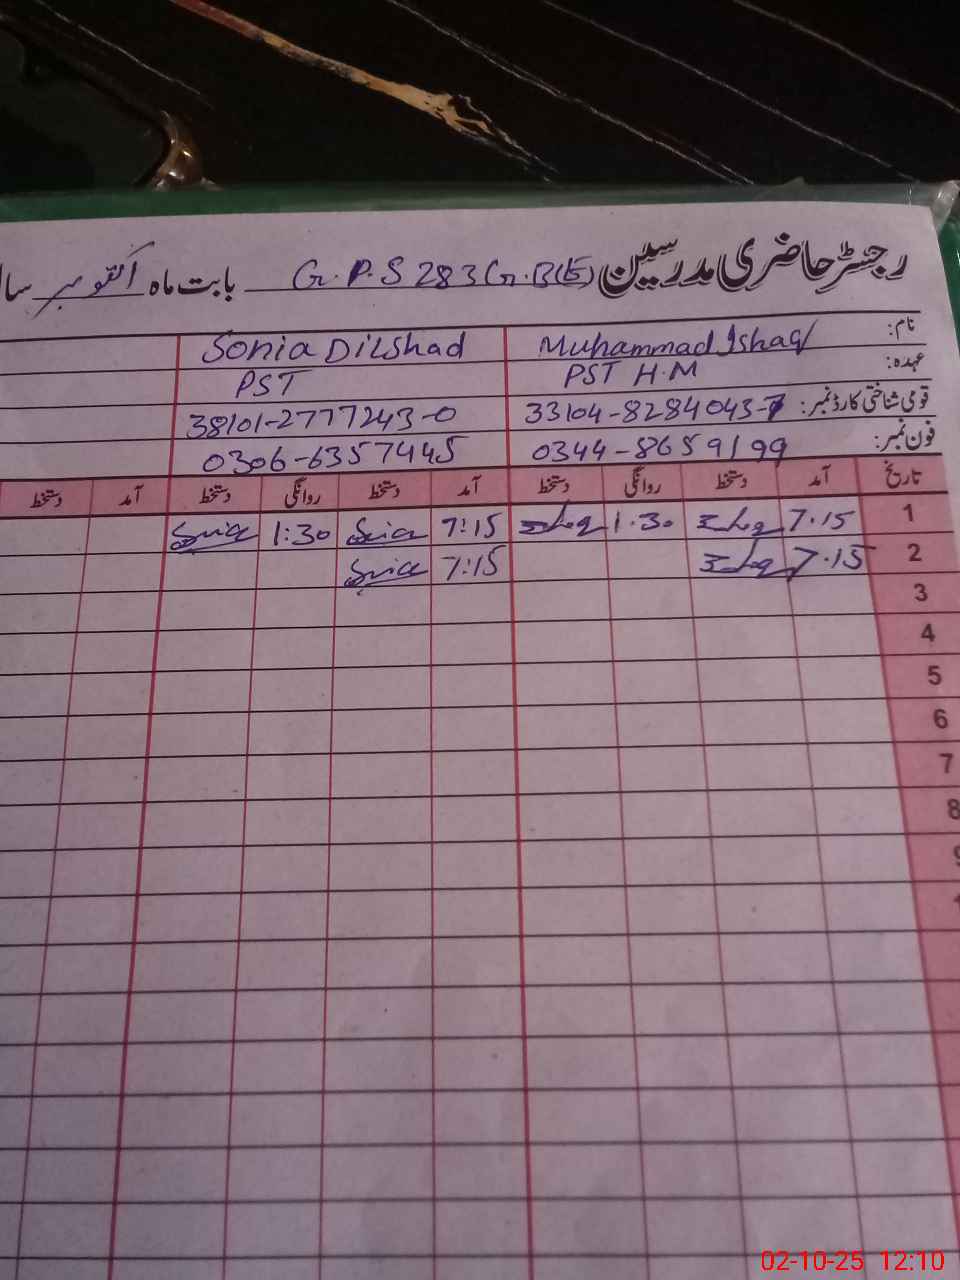 رجسٹر حاضری مدرسین G.P.S 283 G.B(E) بابت ماہ اکتوبر سا
نام: Muhammad Ishaq Sonia Dilshad
عہدہ: PST H.M PST
قومی شناختی کارڈ نمبر: 33104-8284043-7 38101-2777243-0
فون نمبر: 0344-8659199 0306-6357445
تاریخ آمد دستخط روانگی دستخط آمد دستخط روانگی دستخط آمد دستخط
1 7.15 1.30 7:15 1:30
2 7.15 7:15
3
4
5
6
7
8
9
02-10-25 12:10